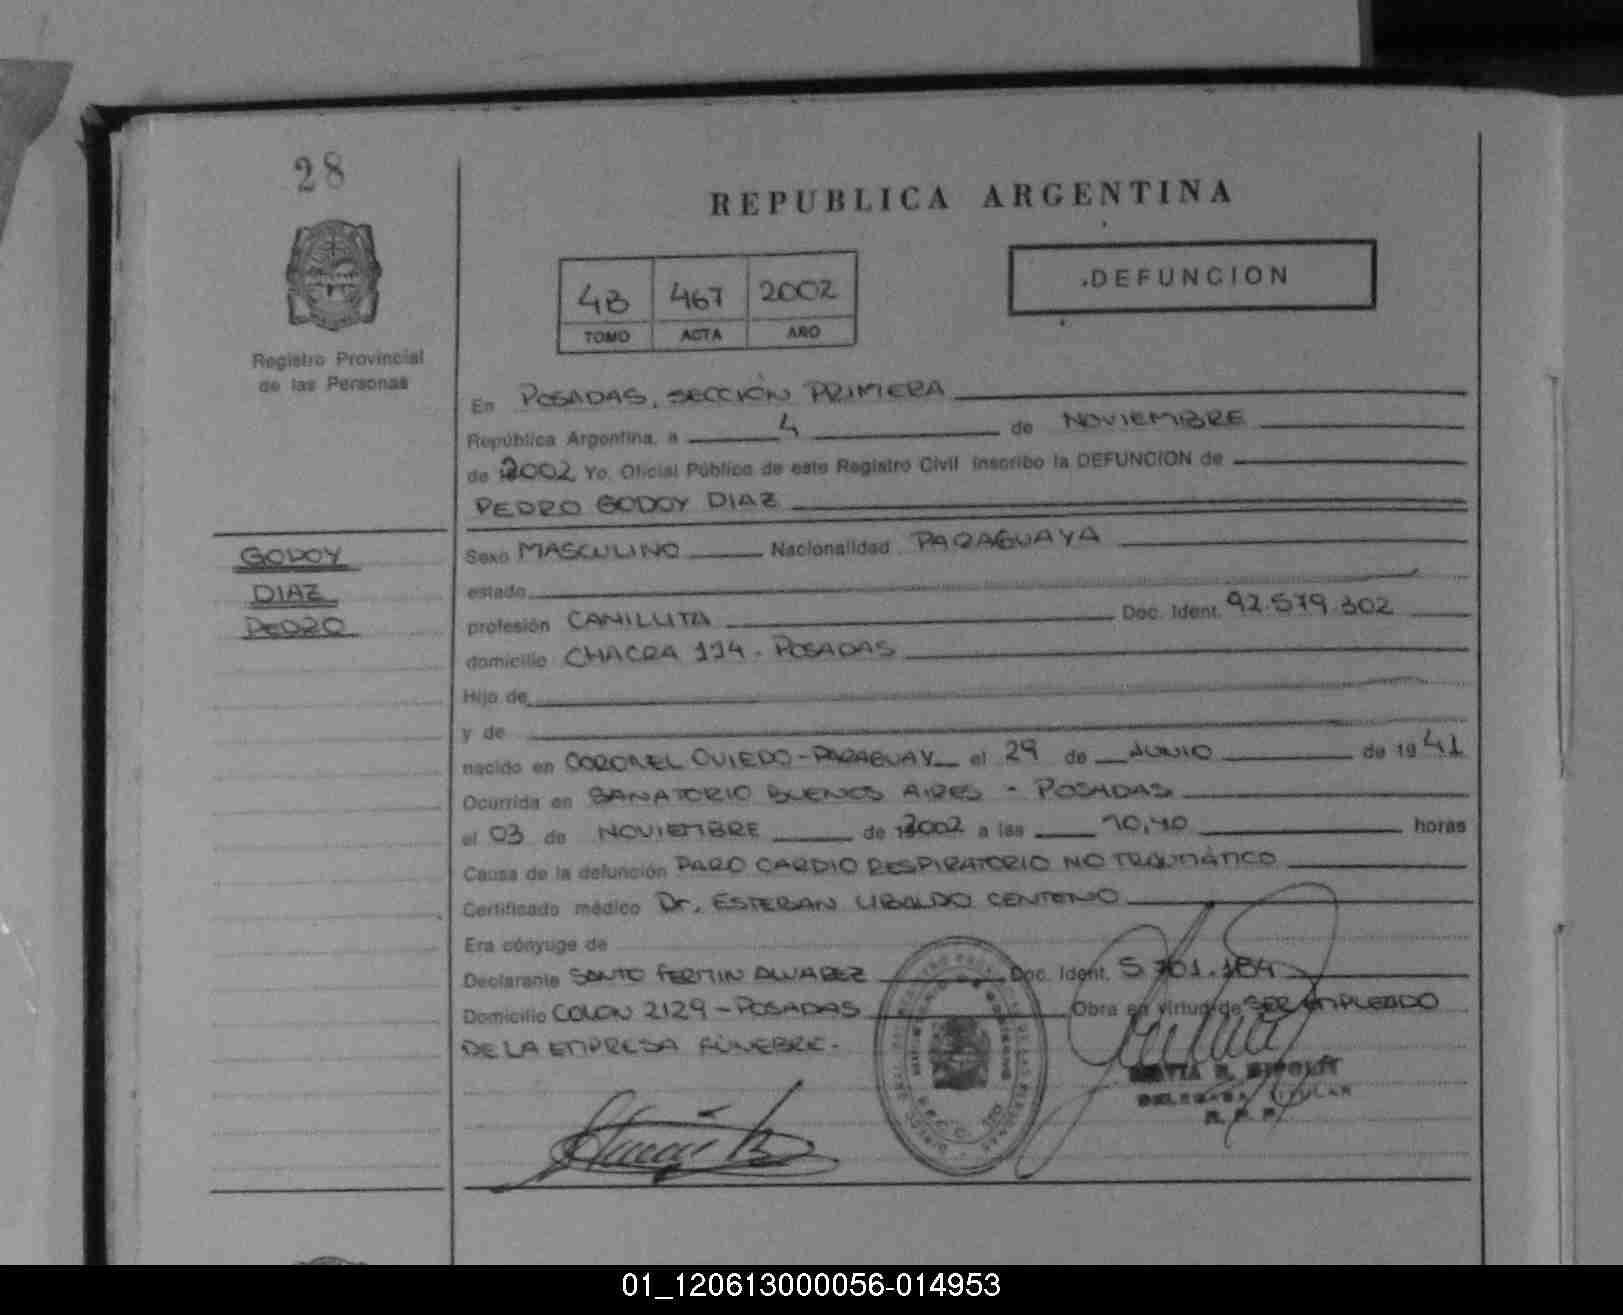 28
REPUBLICA ARGENTINA
4B 467 2002
TOMO ACTA AÑO
DEFUNCION
Registro Provincial
de las Personas
En POSADAS, SECCIÓN PRIMERA
República Argentina, a 4 de NOVIEMBRE
de 2002 Yo, Oficial Público de este Registro Civil inscribo la DEFUNCION de
PEDRO GODOY DIAZ
GODOY
DIAZ
PEDRO
Sexo MASCULINO Nacionalidad PARAGUAYA
estado
profesión CANILLITA Doc. Ident. 92.579.302
domicilio CHACRA 114 - POSADAS
Hijo de
y de
nacido en CORONEL OVIEDO - PARAGUAY el 29 de JUNIO de 1941
Ocurrida en SANATORIO BUENOS AIRES - POSADAS
el 03 de NOVIEMBRE de 2002 a las 10,40 horas
Causa de la defunción PARO CARDIO RESPIRATORIO NO TRAUMÁTICO
Certificado médico Dr. ESTEBAN UBALDO CENTENO
Era cónyuge de
Declarante SANTO FERMIN ALVAREZ Doc. Ident. 5.701.184
Domicilio COLON 2129 - POSADAS Obra en virtud de SER EMPLEADO
DE LA EMPRESA FÚNEBRE.
DELEGADA TITULAR
R. P. P.
01_120613000056-014953